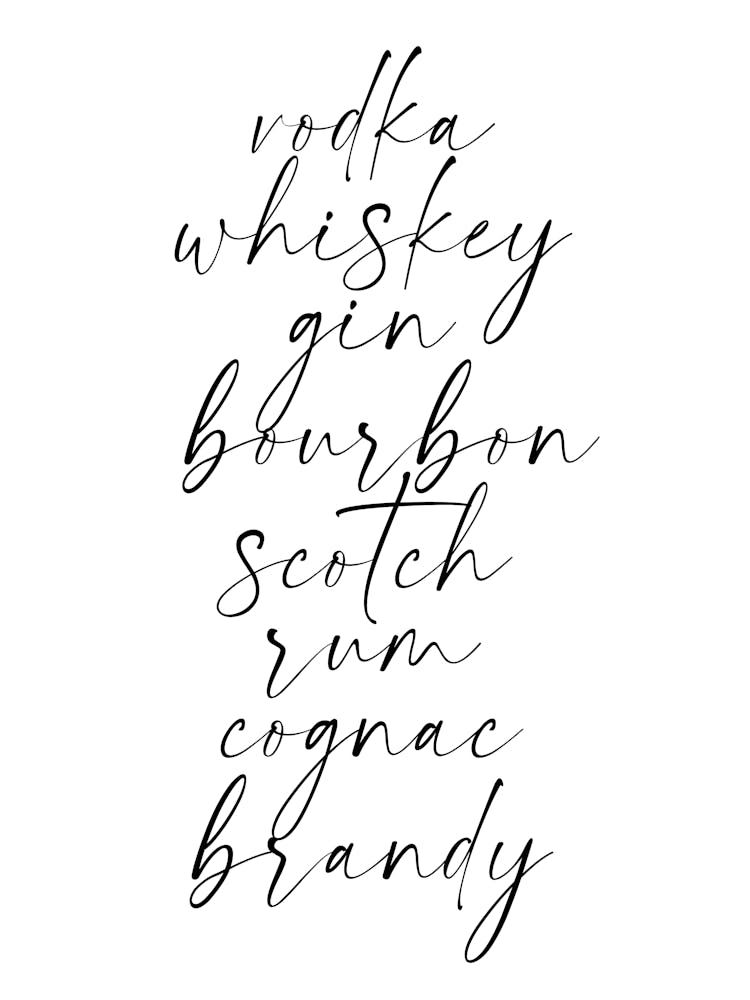 vodka
whiskey
gin
bourbon
scotch
rum
cognac
brandy